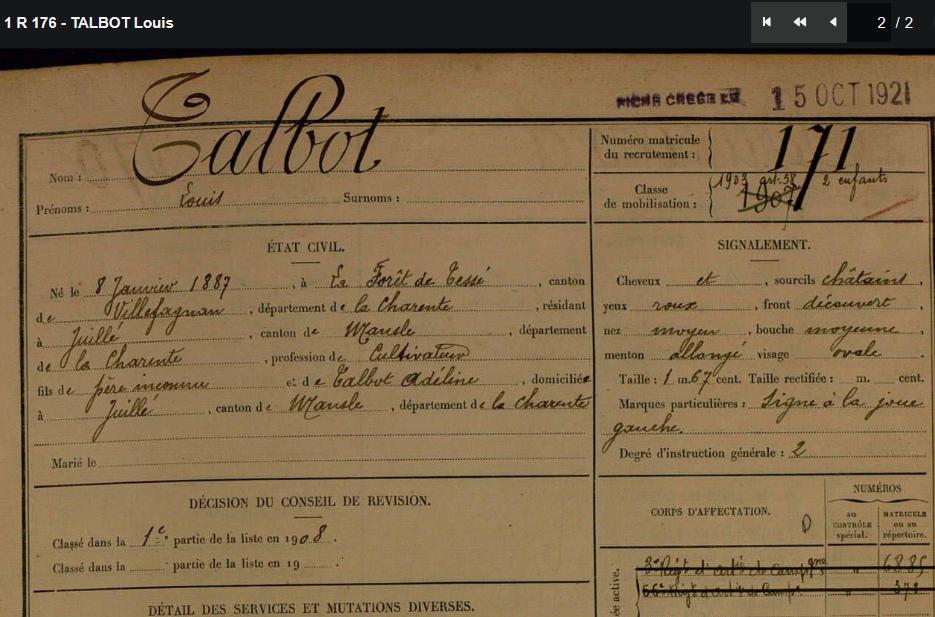 1 R 176 - TALBOT Louis
2 / 2
Talbot
FICHE CREEE LE 15 OCT 1921
Nom :
Prénoms : Louis Surnoms :
Numéro matricule du recrutement : 171
Classe de mobilisation : 1903 art. 58 2 enfants
1907
ÉTAT CIVIL.
Né le 8 Janvier 1887, à La Forêt de Tessé, canton
de Villefagnan, département de la Charente, résidant
à Juillé, canton de Mansle, département
de la Charente, profession de Cultivateur
fils de père inconnu et de Talbot Adéline, domiciliée
à Juillé, canton de Mansle, département de la Charente
Marié le
SIGNALEMENT.
Cheveux et, sourcils châtains,
yeux roux, front découvert,
nez moyen, bouche moyenne,
menton allongé visage ovale.
Taille : 1 m. 67 cent. Taille rectifiée : m. cent.
Marques particulières : Signe à la joue
gauche.
Degré d'instruction générale : 2
DÉCISION DU CONSEIL DE REVISION.
Classé dans la 1e partie de la liste en 1908.
Classé dans la partie de la liste en 19 .
DÉTAIL DES SERVICES ET MUTATIONS DIVERSES.
CORPS D'AFFECTATION.
NUMÉROS
au CONTRÔLE spécial.
MATRICULE ou au répertoire.
ée active.
3e Régt d'artie de Campgne " 6885
56e Régt d'artie de Campe "